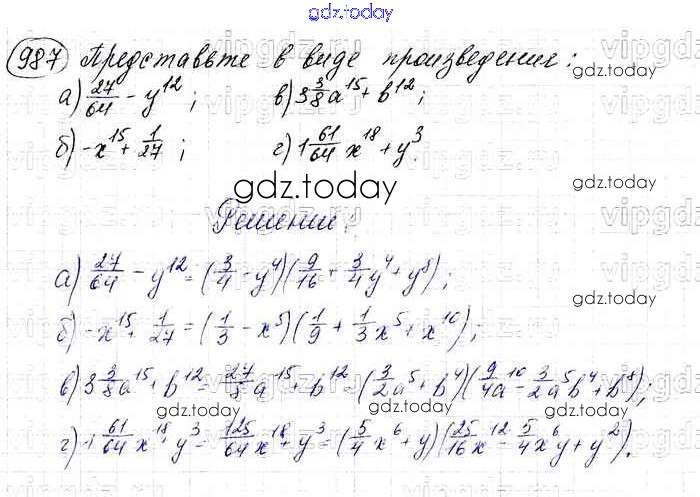 gdz.today
987 Представьте в виде произведение:
а) 27/64 - y^12; в) 3 3/8 a^15 + b^12;
б) -x^15 + 1/27; г) 1 61/64 x^18 + y^3.
gdz.today
Решение:
а) 27/64 - y^12 = (3/4 - y^4)(9/16 + 3/4 y^4 + y^8);
б) -x^15 + 1/27 = (1/3 - x^5)(1/9 + 1/3 x^5 + x^10);
в) 3 3/8 a^15 + b^12 = 27/8 a^15 + b^12 = (3/2 a^5 + b^4)(9/4 a^10 - 3/2 a^5 b^4 + b^8);
г) 1 61/64 x^18 + y^3 = 125/64 x^18 + y^3 = (5/4 x^6 + y)(25/16 x^12 - 5/4 x^6 y + y^2).